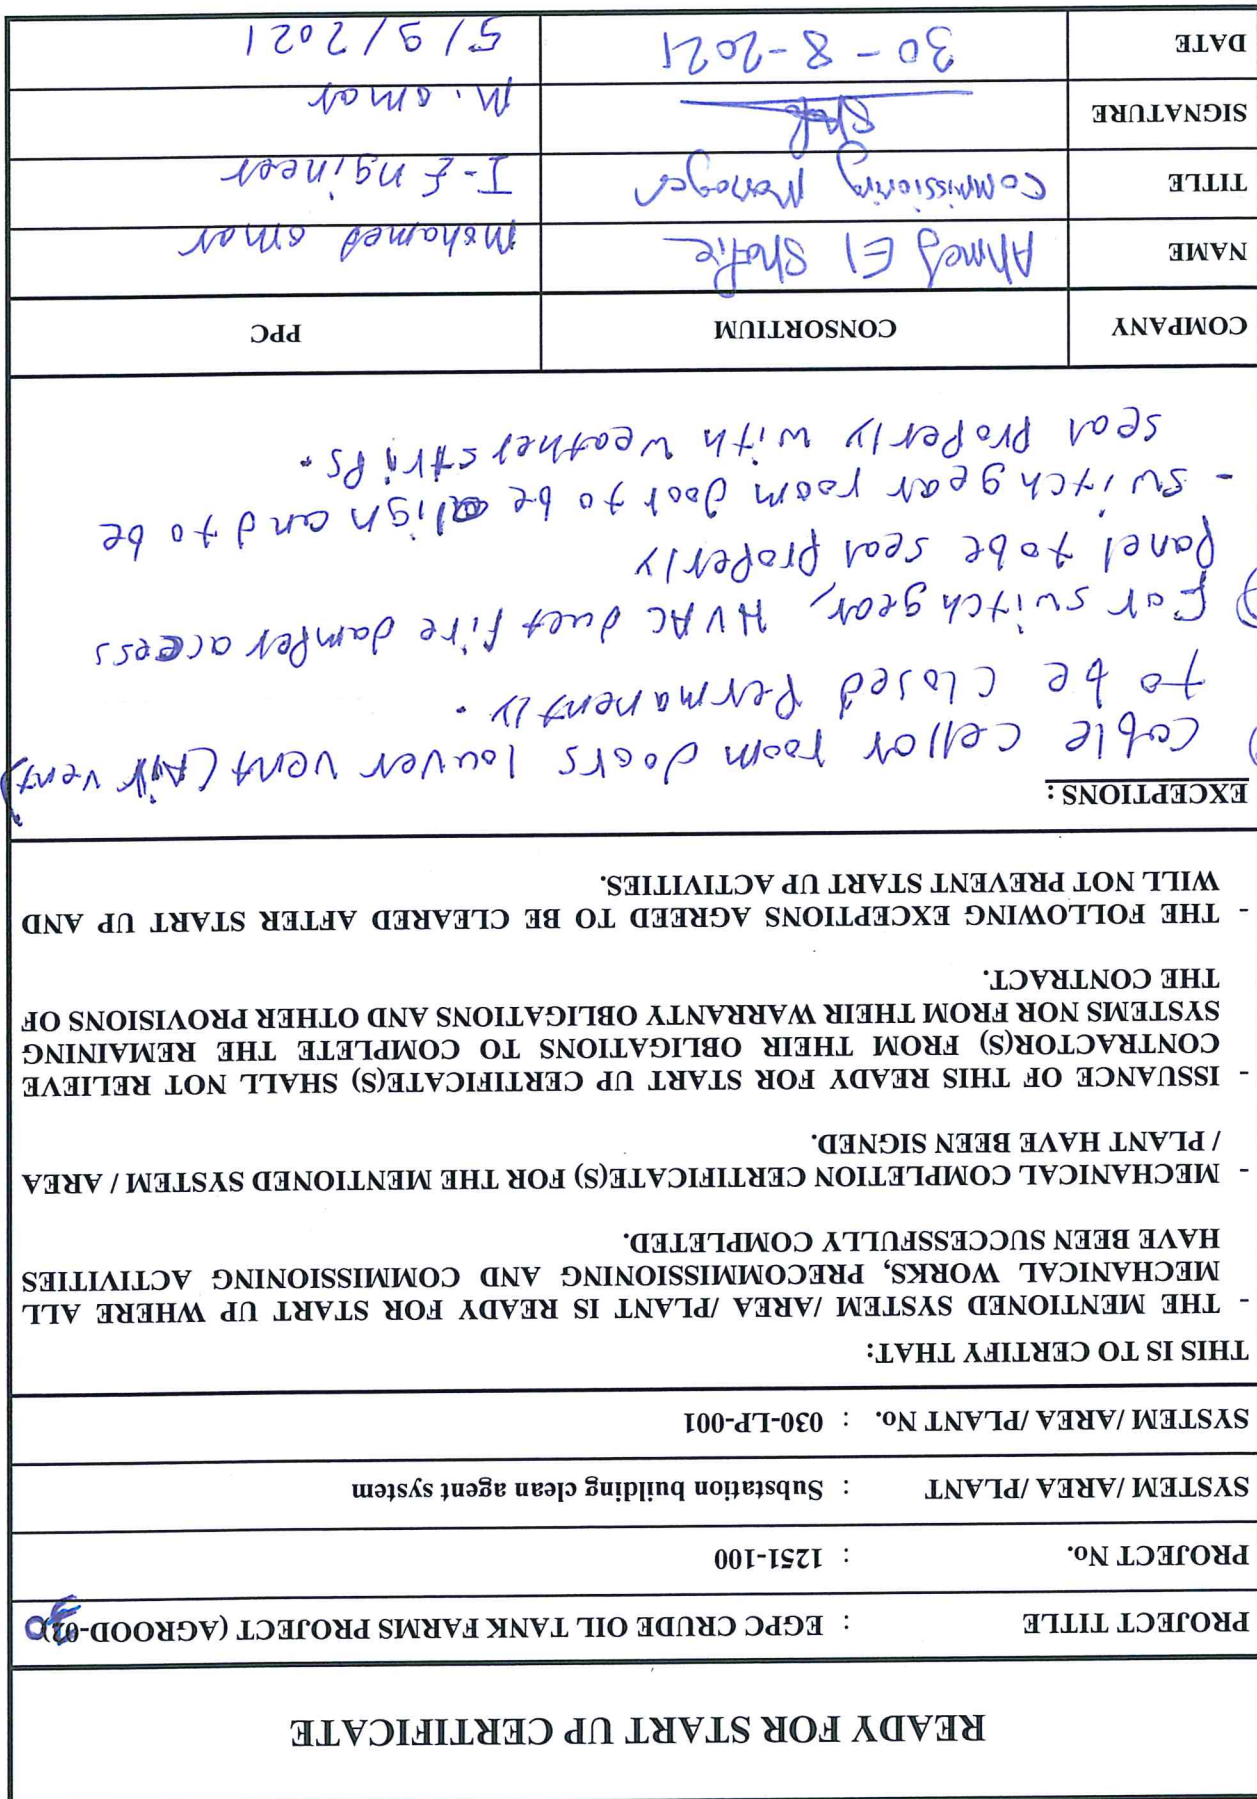 READY FOR START UP CERTIFICATE
PROJECT TITLE : EGPC CRUDE OIL TANK FARMS PROJECT (AGROOD-
PROJECT No. : 1251-100
SYSTEM /AREA /PLANT : Substation building clean agent system
SYSTEM /AREA /PLANT No. : 030-LP-001
THIS IS TO CERTIFY THAT:
- THE MENTIONED SYSTEM /AREA /PLANT IS READY FOR START UP WHERE ALL
MECHANICAL WORKS, PRECOMMISSIONING AND COMMISSIONING ACTIVITIES
HAVE BEEN SUCCESSFULLY COMPLETED.
- MECHANICAL COMPLETION CERTIFICATE(S) FOR THE MENTIONED SYSTEM / AREA
/ PLANT HAVE BEEN SIGNED.
- ISSUANCE OF THIS READY FOR START UP CERTIFICATE(S) SHALL NOT RELIEVE
CONTRACTOR(S) FROM THEIR OBLIGATIONS TO COMPLETE THE REMAINING
SYSTEMS NOR FROM THEIR WARRANTY OBLIGATIONS AND OTHER PROVISIONS OF
THE CONTRACT.
- THE FOLLOWING EXCEPTIONS AGREED TO BE CLEARED AFTER START UP AND
WILL NOT PREVENT START UP ACTIVITIES.
EXCEPTIONS:
Cable cellar room doors louver vent (Air vent)
to be closed Permanently.
For switchgear, HVAC duct fire damper access
Panel to be seal properly
- switchgear room door to be align and to be
seal properly with weather strips.
COMPANY CONSORTIUM PPC
NAME Ahmed El Shafie Mohamed omar
TITLE Commissioning Manager I-Engineer
SIGNATURE Shafie M. omar
DATE 30-8-2021 5/9/2021